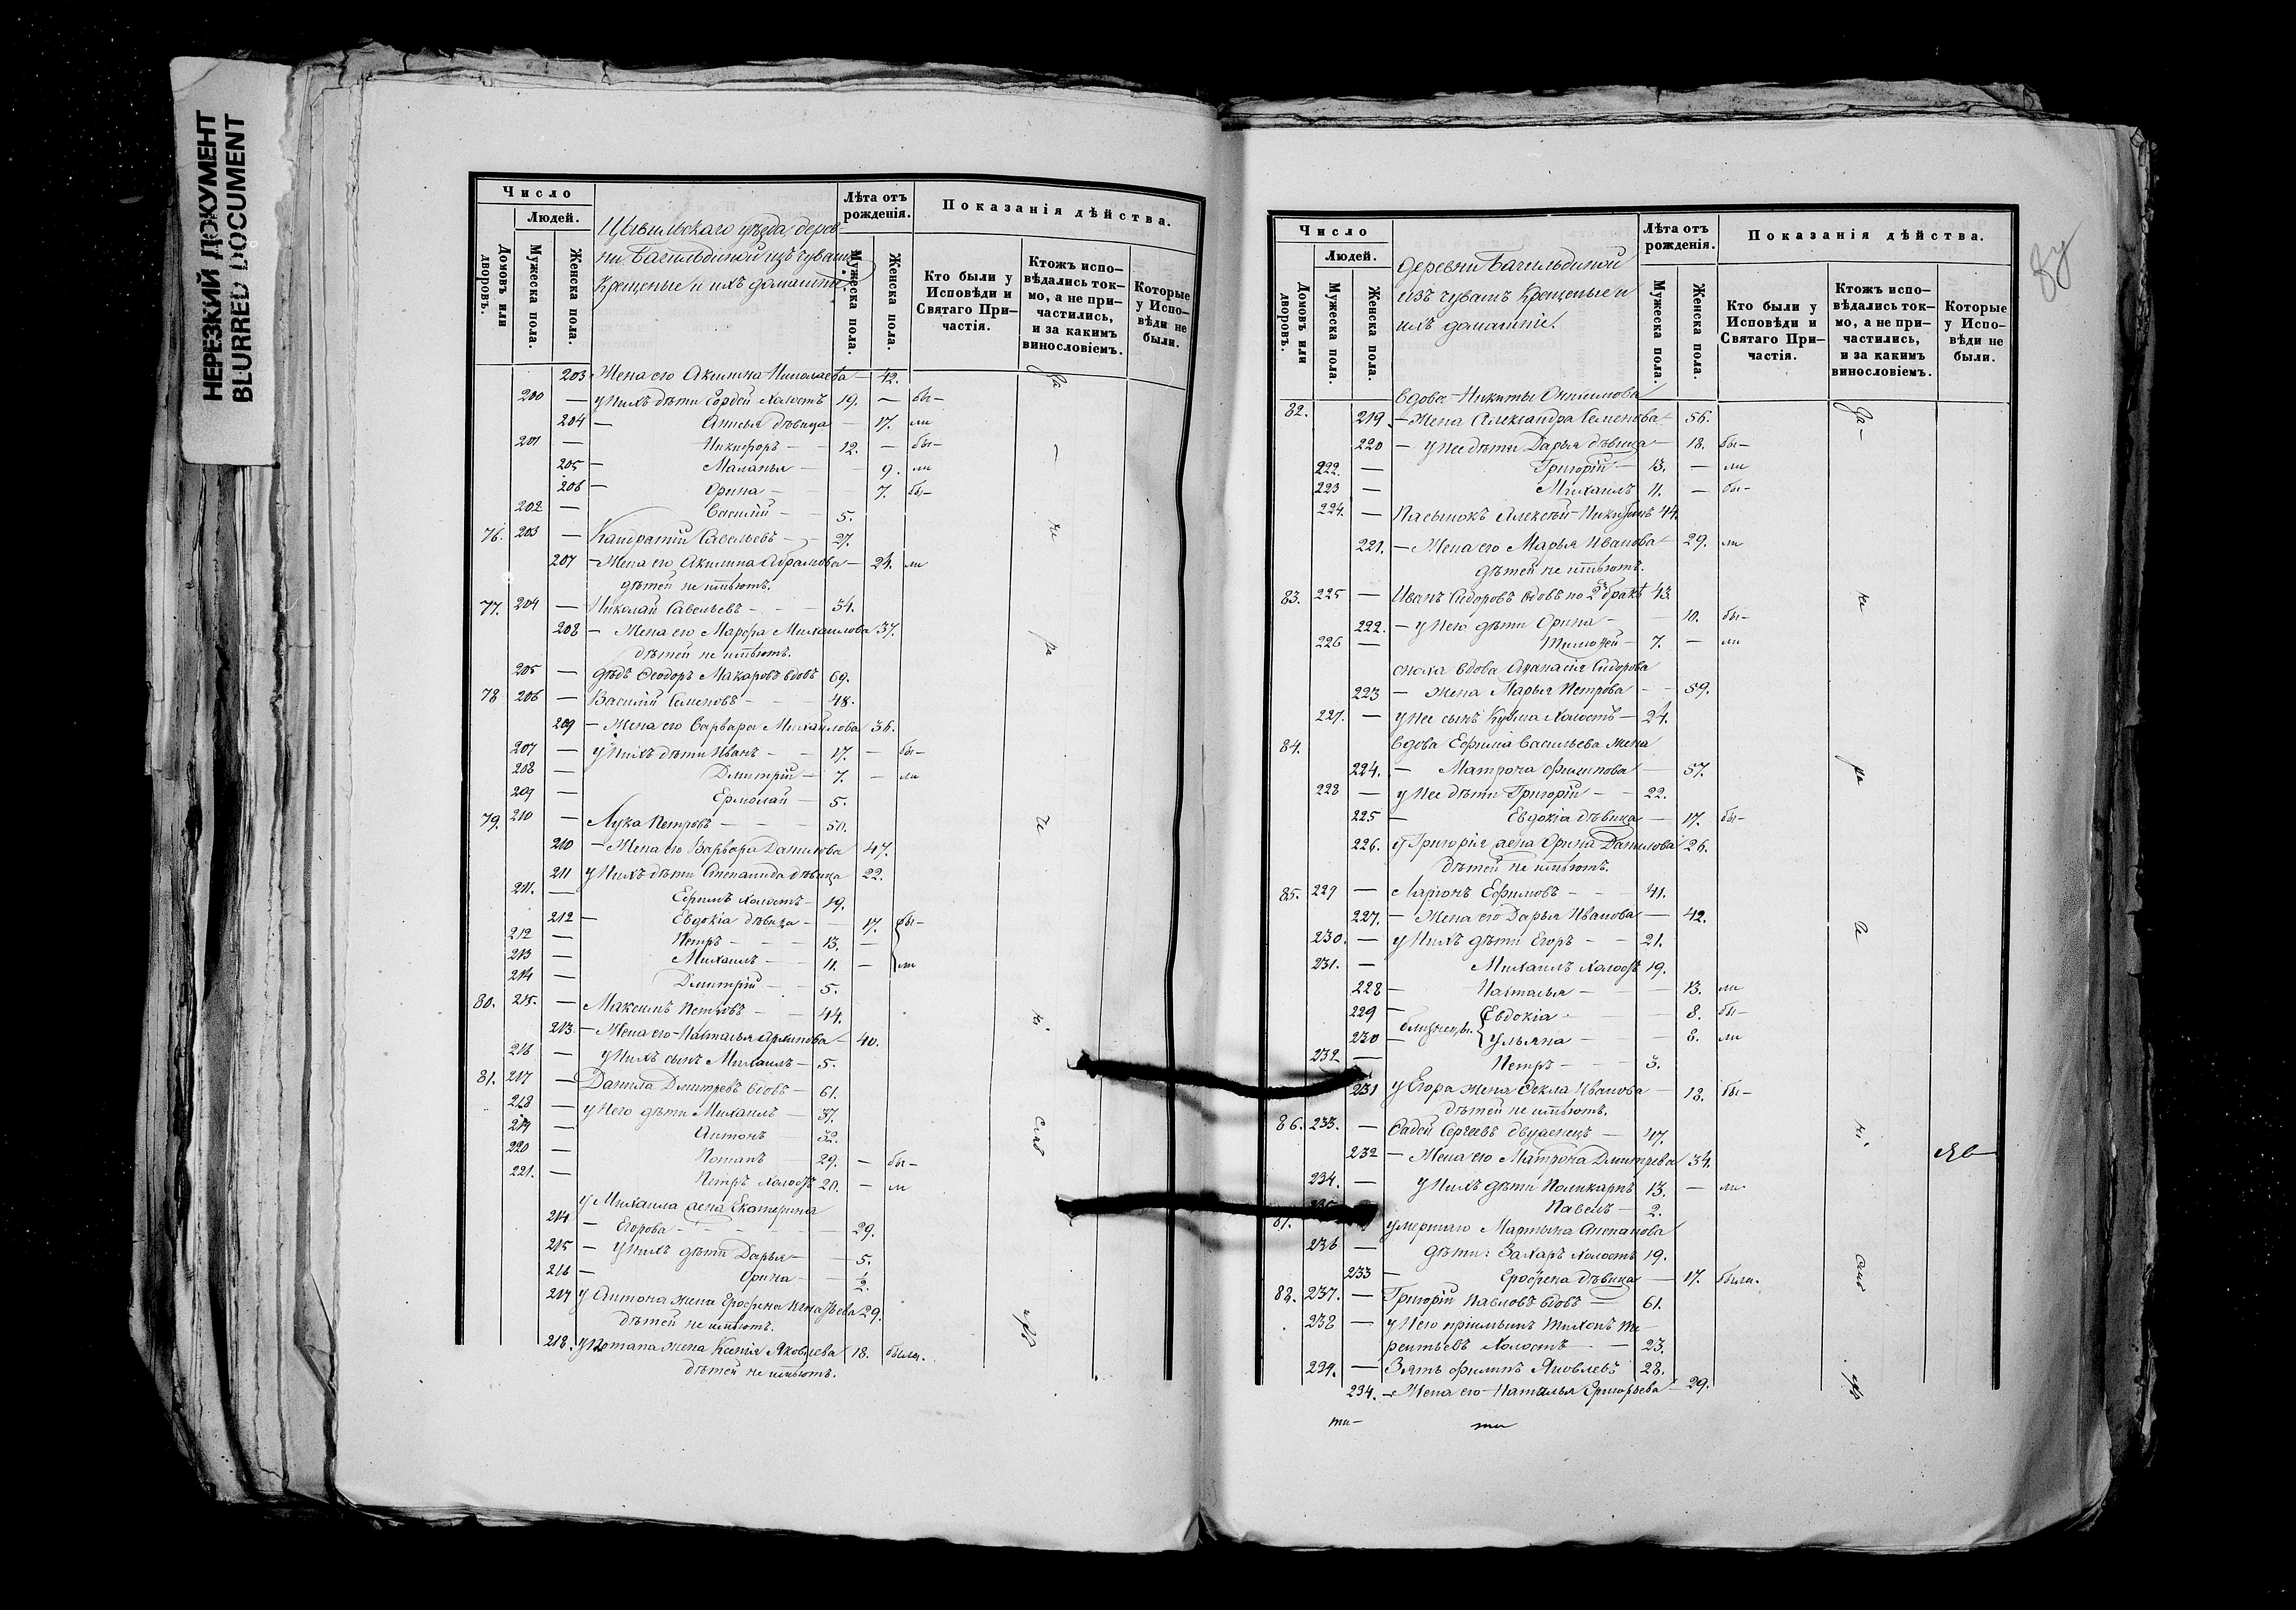 НЕРЕЗКИЙ ДОКУМЕНТ
BLURRED DOCUMENT
Число
Людей.
Домовъ или дворовъ.
Мужеска пола.
Женска пола.
Цывильскаго уѣзда дерев-
ни Багильдиной изъ чувашъ
Крещеные и ихъ домашніе.
Лѣта отъ рожденія.
Мужеска пола.
Женска пола.
Показанія дѣйства.
Кто были у Исповѣди и Святаго При-частія.
Ктожъ испо-вѣдались ток-мо, а не при-частились, и за какимъ винословіемъ.
Которые у Испо-вѣди не были.
203 Жена его Акилина Николаева — 42.
200 — у нихъ дѣти Гордей холостъ 19. — бы-
204 — Анисья дѣвица — 17. ли
201 — Никифоръ — 12. — бы-
205 — Маланья — 9. ли
206 — Орина — 7. бы-
202 — Василій — 5.
76. 203 — Кандратій Савельевъ — 27.
207 — Жена его Акилина Абрамова — 24. ли
дѣтей не имѣютъ.
77. 204 — Николай Савельевъ — 34.
208 — Жена его Марфа Михаилова 37.
дѣтей не имѣютъ.
205 — дѣдъ Ѳеодоръ Макаровъ вдовъ 69.
78 206 — Василій Семеновъ — 48.
209 — Жена его Варвара Михайлова 36.
207 — у нихъ дѣти Иванъ — 17. — бы-
208 — Димитрій — 7. — ли
209 — Ермолай — 5.
79. 210 — Лука Петровъ — 50.
210 — Жена его Варвара Данилова 47.
211 у нихъ дѣти Степанида дѣвица 22.
211. — Ефимъ холостъ — 19.
212 — Евдокіа дѣвица — 17. бы-
212 — Петръ — 13. —
213 — Михаилъ — 11. — ли
214 — Димитрій — 5.
80. 215. — Максимъ Петровъ — 44.
213 — Жена его Наталья Архипова — 40.
216 — у нихъ сынъ Михаилъ — 5.
81. 217 — Данила Дмитревъ вдовъ — 61.
218 — у него дѣти Михаилъ — 37.
219 — Антонъ — 32.
220 — Потапъ — 29. — бы-
221. — Петръ холостъ 20. — ли
у Михаила жена Екатерина
214 — Егорова — 29.
215 — у нихъ дѣти Дарья — 5.
216 — Орина — ½.
217 у Антона жена Ерофена Игнатьева 29.
дѣтей не имѣютъ.
218. у Потапа жена Ксенія Яковлева 18. были.
дѣтей не имѣютъ.
Число
Людей.
Домовъ или дворовъ.
Мужеска пола.
Женска пола.
деревни Багильдиной
изъ чувашъ Крещеные и
ихъ домашніе.
Лѣта отъ рожденія.
Мужеска пола.
Женска пола.
Показанія дѣйства.
Кто были у Исповѣди и Святаго При-частія.
Ктожъ испо-вѣдались ток-мо, а не при-частились, и за какимъ винословіемъ.
Которые у Испо-вѣди не были.
82. вдова Никиты Онисимова
219 — жена Александра Семенова 56.
220 — у нее дѣти Дарья дѣвица — 18. бы-
222. — Григорій — 13. — ли
223 — Михаилъ 11. — бы-
224. — Пасынокъ Алексѣй Никитинъ 44.
221. — Жена его Марья Иванова 29. ли
дѣтей не имѣютъ.
83. 225 — Иванъ Сидоровъ вдовъ по 2 бракѣ 43
222. — у него дѣти Орина — 10. бы-
226 — Тимоѳей — 7. — ли
сноха вдова Аѳанасія Сидорова
223 — жена Марья Петрова — 59.
227. — у нее сынъ Кузма холостъ — 24.
84. вдова Ефима Васильева жена
224. — Матрона Филипова — 57.
228 — у нее дѣти Григорій — 22.
225 — Евдокіа дѣвица — 17. бы-
226. у Григорія жена Орина Данилова 26.
дѣтей не имѣютъ.
85. 229 — Ларіонъ Ефимовъ — 41.
227. — Жена его Дарья Иванова — 42.
230. — у нихъ дѣти Егоръ — 21.
231. — Михаилъ холостъ 19.
228 — Наталья — 13. ли
229 — Евдокіа — 8. бы-
близнецы
230 — Ульяна — 8. ли
232 — Петръ — 3.
231 у Егора жена Ѳекла Иванова — 18. бы-
дѣтей не имѣютъ.
86. 233. — Ѳадей Сергеевъ двуженецъ — 47.
232 — Жена его Матрона Димитрева 34.
234. — у нихъ дѣти Поликарпъ 13. — ли
Павелъ — 2.
87. умершаго Мартына Степанова
236 — дѣти: Захаръ холостъ 19.
233 — Ерофена дѣвица — 17. были.
88. 237. — Григорій Павловъ вдовъ — 61.
238 — у него пріимышъ Тихонъ Те-
рентьевъ холостъ — 23.
239. — Зять Филипъ Яковлевъ 28.
234. — Жена его Наталья Григорьева — 29.